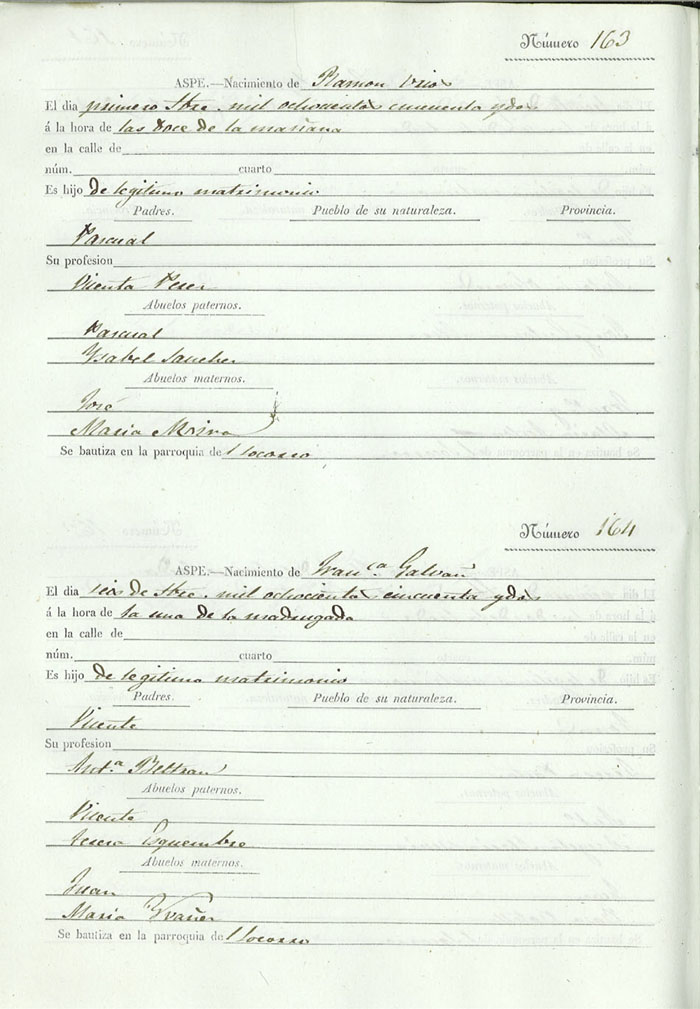 Número 163
ASPE.—Nacimiento de Ramon Urios
El dia primero Sbre. mil ochocientos cincuenta y dos
á la hora de las doce de la mañana
en la calle de
núm. cuarto
Es hijo de legitimo matrimonio
Padres. Pueblo de su naturaleza. Provincia.
Pascual
Su profesion
Vicenta Perez
Abuelos paternos.
Pascual
Ysabel Sanchez
Abuelos maternos.
José
Maria Mira
Se bautiza en la parroquia del Socorro
Número 164
ASPE.—Nacimiento de Fran.ca Galvañ
El dia seis de Sbre. mil ochocientos cincuenta y dos
á la hora de la una de la madrugada
en la calle de
núm. cuarto
Es hijo de legitimo matrimonio
Padres. Pueblo de su naturaleza. Provincia.
Vicente
Su profesion
Ant.a Beltran
Abuelos paternos.
Vicente
Teresa Esquembre
Abuelos maternos.
Juan
Maria Yvañez
Se bautiza en la parroquia del Socorro